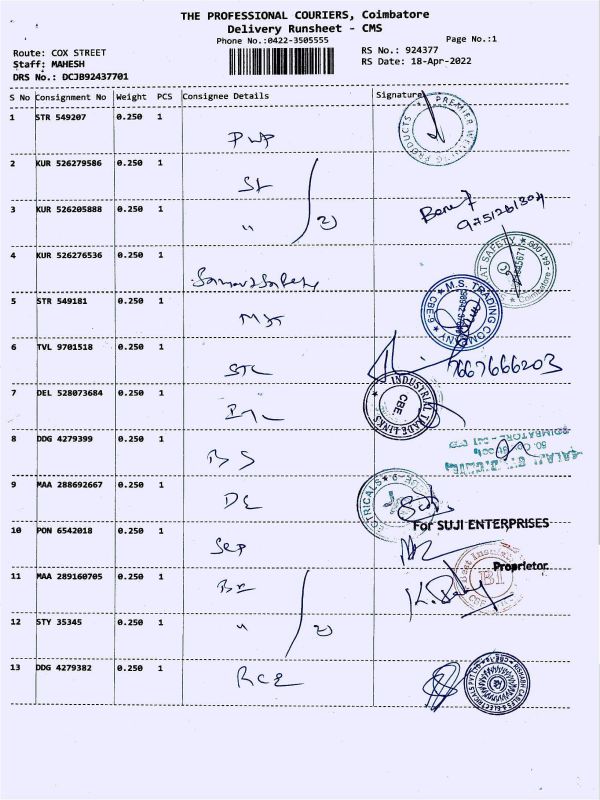 THE PROFESSIONAL COURIERS, Coimbatore
Delivery Runsheet - CMS
Phone No.:0422-3505555
Page No.:1
Route: COX STREET
RS No.: 924377
Staff: MAHESH
RS Date: 18-Apr-2022
DRS No.: DCJB92437701
S No Consignment No Weight PCS Consignee Details Signature
1 STR 549207 0.250 1
PREMIER WELDING PRODUCTS
PWP
2 KUR 526279586 0.250 1
St
3 KUR 526205888 0.250 1
" 2
9751261304
4 KUR 526276536 0.250 1
AT SAFETY
Coimbatore - 641 009
5 STR 549181 0.250 1
M.S. TRADING COMPANY
CBE-9
6 TVL 9701518 0.250 1
STC
7667666203
7 DEL 528073684 0.250 1
INDUSTRIAL TRADE LINKS
CBE.
8 DDG 4279399 0.250 1
BS
9 MAA 288692667 0.250 1
DE
ECTRICALS
For SUJI ENTERPRISES
10 PON 6542018 0.250 1
Sep
Proprietor.
11 MAA 289160705 0.250 1
BI
12 STY 35345 0.250 1
" 2
13 DDG 4279382 0.250 1
RCE
RISHABH CABLES & ELECTRICALS PVT LTD